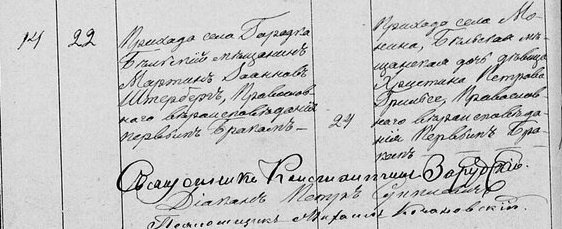 14 22
Прихода села Городка
Бѣльскій мѣщанинъ
Мартинъ Іоанновъ
Штерберъ, Православ-
наго вѣроисповѣданія
первымъ бракомъ
24
Прихода села Мо-
кина, Бѣльская мѣ-
щанская дочь дѣвица
Христина Петрова
Православ-
наго вѣроисповѣда-
нія первымъ бра-
комъ
Священникъ Константинъ
Діаконъ Петръ
Михаилъ Кочановскій.